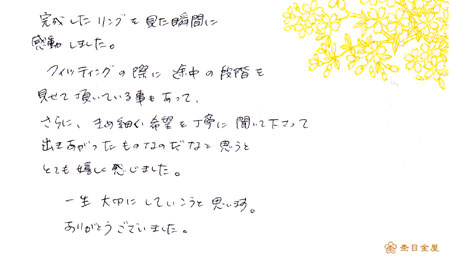 完成したリングを見た瞬間に
感動しました。
フィッティングの際に途中の段階を
見せて頂いている事もあって、
さらに、きめ細かい希望を丁寧に聞いて下さって
出来あがったものなのだなと思うと
とても嬉しく感じました。
一生大切にしていこうと思います。
ありがとうございました。
杢目金屋